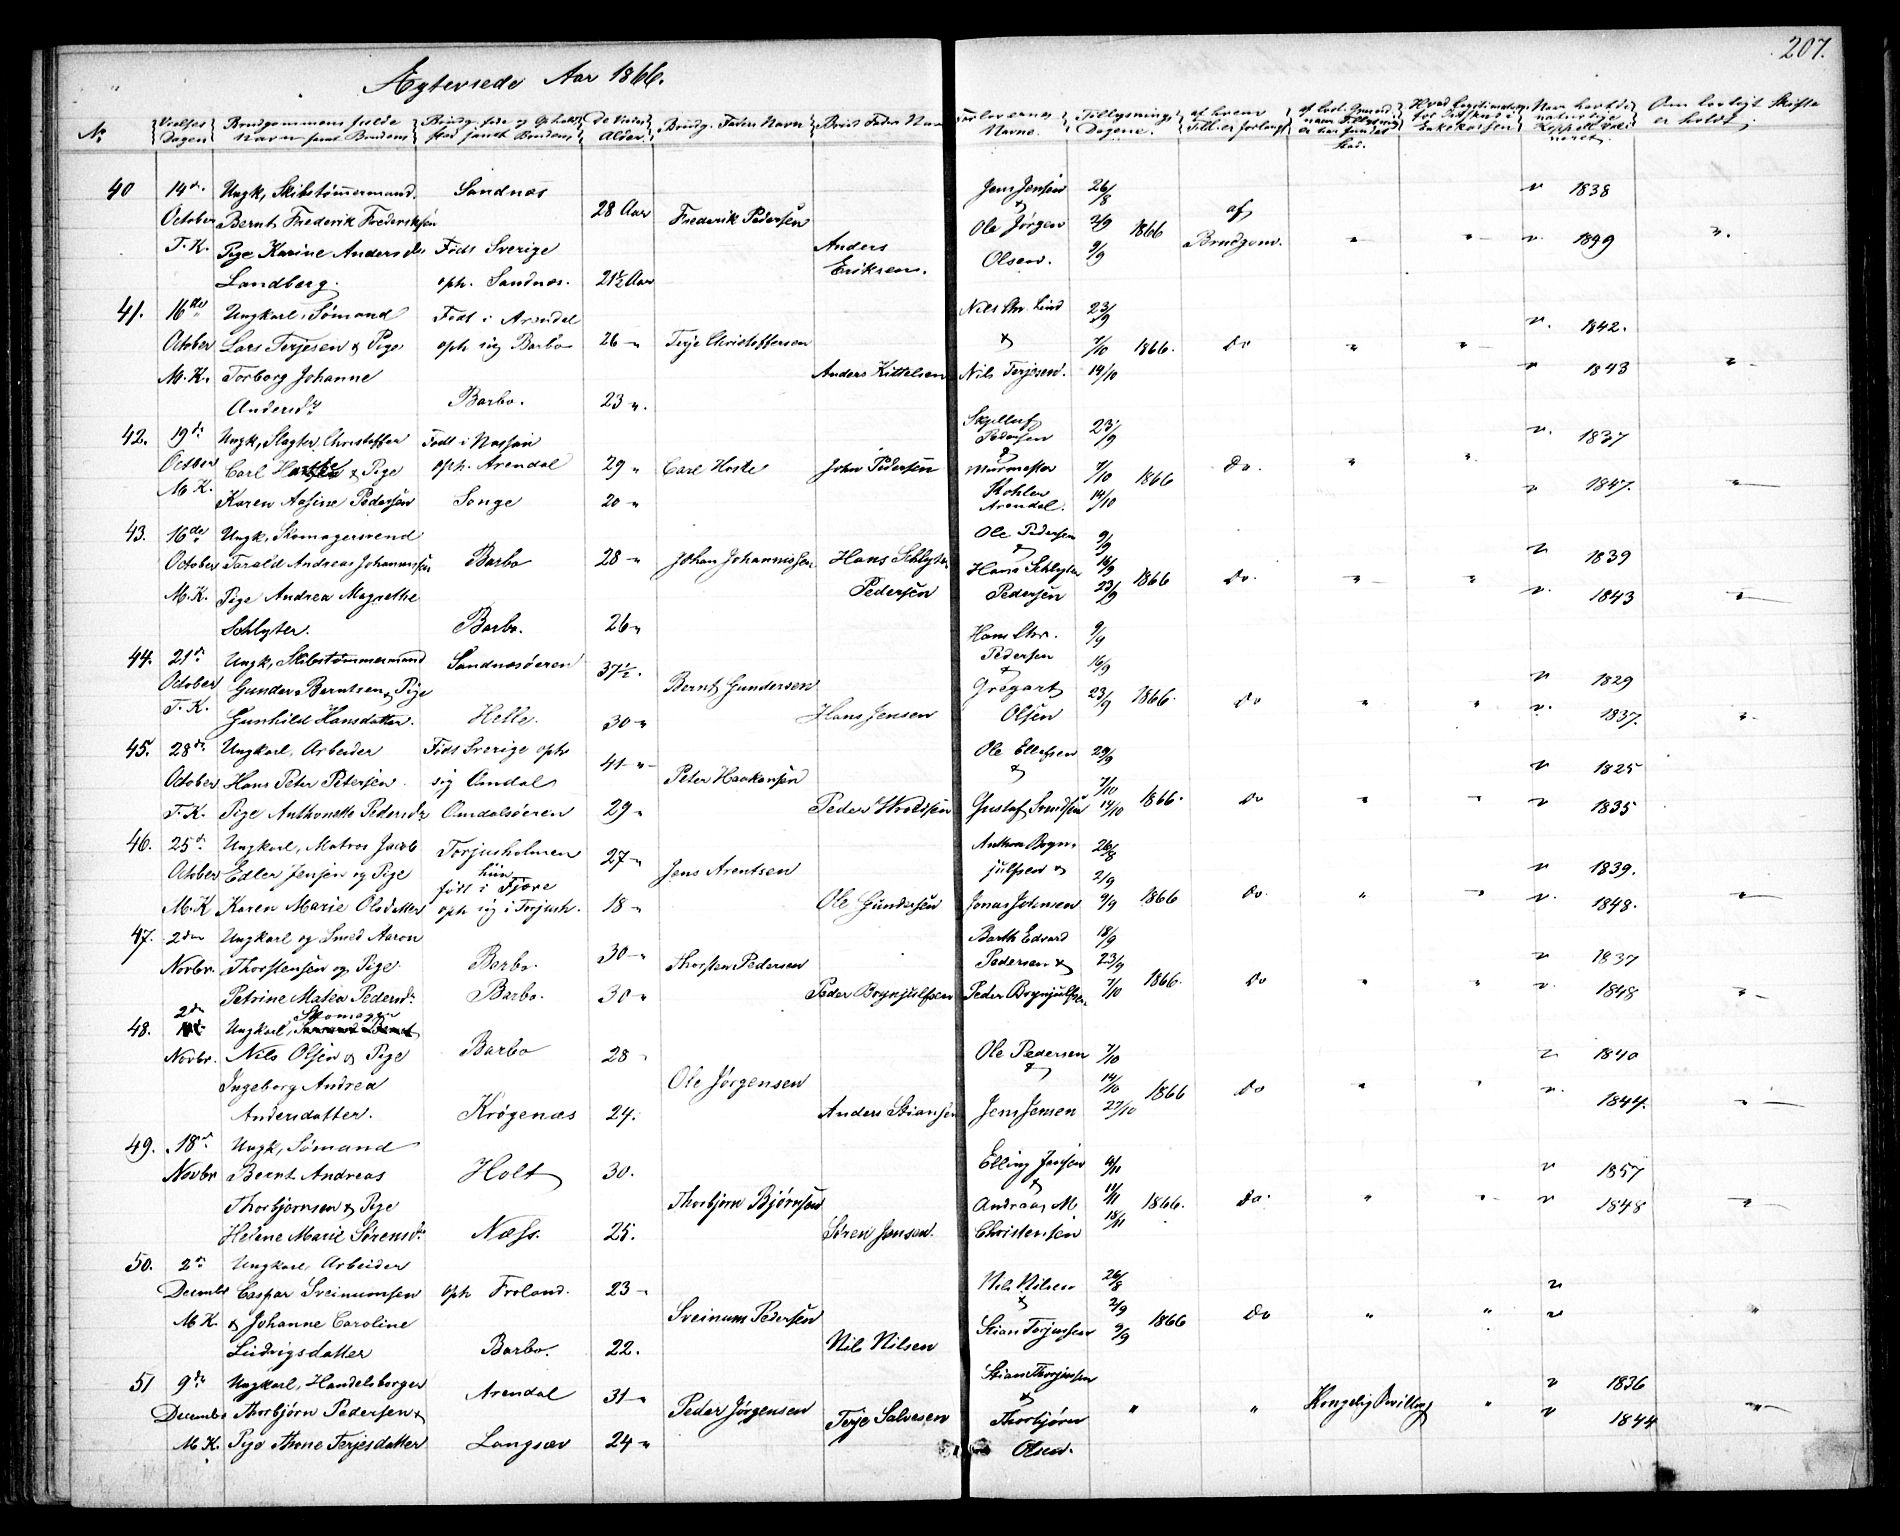 207.
Ægteviede Aar 1866.
No
Vielses Dagen
Brudgommens fulde Navn samt Brudens
Alder
Brudg. Faders Navn
Brud. Faders Navn
Forlovernes Navne.
Tillysnings Dagene.
40 14de October T.K.
Ungk, Skibstømmermand Bernt Frederik Frederiksen
Pige Karine Andersdr Landberg.
Sandnæs
Født Sverige oph. Sandnæs.
28 Aar
21½ Aar
Frederik Pedersen
Anders Eriksen.
Jens Jensen & Ole Jørgen Olsen.
26/8 2/9 9/9 1866
af Brudgom.
" " "
" 1838
" 1849
41. 16de October M.K.
Ungkarl, Sømand Lars Terjesen & Pige
Torborg Johanne Andersdr
Født i Arendal oph sig Barbo
Barbo.
26 "
23 ".
Terje Christoffersen
Anders Kittelsen
Nils Chr. Lind & Nils Terjesen.
23/9 7/10 14/10 1866.
Do " "
". 1842.
" 1843
42. 19de October M.K.
Ungk, Slagter Christoffer Carl & Pige
Karen Aasine Pedersen
Født i Nassau oph. Arendal
Songe
29 "
20 "
Carl Hoste
John Pedersen
Skjelluf Pedersen & Murmester Kohler Arendal.
23/9 7/10 14/10 1866
Do. " "
". 1837
" 1847.
43. 16de October M.K.
Ungk, Skomagersvend Tarald Andreas Johannsen
Pige Andrea Magrethe Schlyter.
Barbo
Barbo.
28 "
26 "
Johan Johannissen
Hans Schlyter Pedersen
Ole Pedersen & Hans Schlyter Pedersen
9/9 16/9 23/9 1866
Do. " "
" 1839
". 1843
44. 21de October T.K.
Ungk, Skibstømmermand Gunder Berntsen & Pige
Gunhild Hansdatter.
Sandnæsøeren
Helle.
37½.
30 "
Bernt Gundersen
Hans Jensen
Hans Chr. Pedersen & Gregart Olsen
9/9 16/9 23/9 1866.
Do " "
" 1829
". 1837.
45. 28de October T.K.
Ungkarl, Arbeider Hans Peter Petersen.
Pige Anthonette Pedersdr
Født Sverige oph sig Omdal
Omdalsøeren
41 "
29 "
Peter Haakensen
Peder Wroldsen
Ole Ellefsen & Gustaf Svendsen
29/9 7/10 14/10 1866.
Do " "
" 1825
" 1835
46. 25de October M.K
Ungkarl, Matros Jacob Edler Jensen og Pige
Karen Marie Olsdatter
Torjusholmen
hun født i Fjære oph sig i Torjush.
27 "
18 "
Jens Arentsen
Ole Gundersen
Anthon Brynjulfsen & Jonas Johnsen
26/8 2/9 9/9 1866
Do. " "
" 1839.
". 1848.
47. 2den Novbr.
Ungkarl og Smed Aaron Thorstensen og Pige.
Petrine Matea Pedersdr
Barbo.
Barbo.
30 "
30 "
Thorsten Pedersen
Peder Brynjulfsen
Barth Edvard Pedersen & Peder Brynjulfsen
18/9 23/9 7/10 1866.
Do " "
" 1837
". 1848
48. 2den Novbr.
Ungkarl, Skomager Nils Olsen & Pige
Ingeborg Andrea Andersdatter.
Barbo
Krøgenæs
28 "
24.
Ole Jørgensen
Anders Stiansen
Ole Pedersen & Jens Jensen
7/10 14/10 27/10 1866
Do " "
" 1840
". 1844.
49. 18de Novbr
Ungk, Sømand Bernt Andreas Thorbjørnsen & Pige
Helene Marie Sørensdr
Holt
Næss.
30.
25.
Thorbjørn Bjørnsen
Søren Jensen.
Elling Jensen & Andreas M. Christensen
4/11 11/11 18/11 1866.
Do. " "
" 1857
" 1848
50. 2de Decembr M.K.
Ungkarl, Arbeider Caspar Sveinumsen
& Johanne Caroline Ludvigsdatter
oph Froland.
Barbo.
23 "
22.
Sveinum Pedersen
Nils Nilsen
Nils Nilsen & Stian Torjussen
26/8 2/9 9/9 1866
Do " "
"
"
"
51 9de Decembr M.K.
Ungkarl, Handelsborger Thorbjørn Pedersen &
Pige Thone Terjesdatter
Arendal
Langsæv
31 "
24 "
Peder Jørgensen
Terje Salvesen
Stian Thorjussen & Thorbjørn Olsen.
" "
Kongelig Bevilling "
" 1836
" 1844